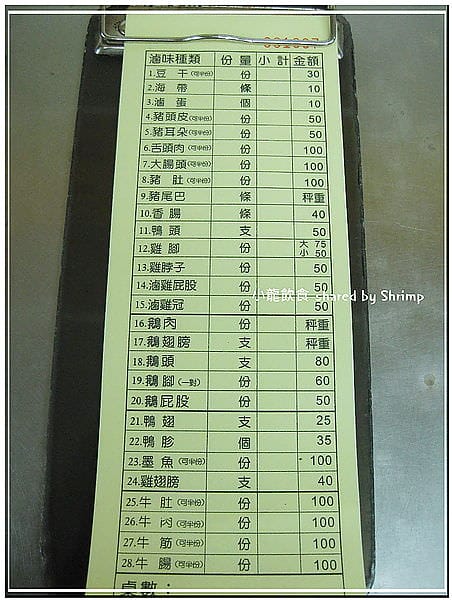 滷味種類 份量 小計 金額
1.豆干(可半份) 份 30
2.海帶 條 10
3.滷蛋 個 10
4.豬頭皮(可半份) 份 50
5.豬耳朵(可半份) 份 50
6.舌頭肉(可半份) 份 100
7.大腸頭(可半份) 份 100
8.豬肚(可半份) 份 100
9.豬尾巴 條 秤重
10.香腸 條 40
11.鴨頭 支 50
12.雞腳 份 大 75 小 50
13.雞脖子 份 50
14.滷雞屁股 份 50
15.滷雞冠 份 50
小龍飲食 shared by Shrimp
16.鵝肉 份 秤重
17.鵝翅膀 支 秤重
18.鵝頭 支 80
19.鵝腳(一對) 份 60
20.鵝屁股 份 50
21.鴨翅 支 25
22.鴨胗 個 35
23.墨魚(可半份) 份 100
24.雞翅膀 支 40
25.牛肚(可半份) 份 100
26.牛肉(可半份) 份 100
27.牛筋(可半份) 份 100
28.牛腸(可半份) 份 100
桌數：